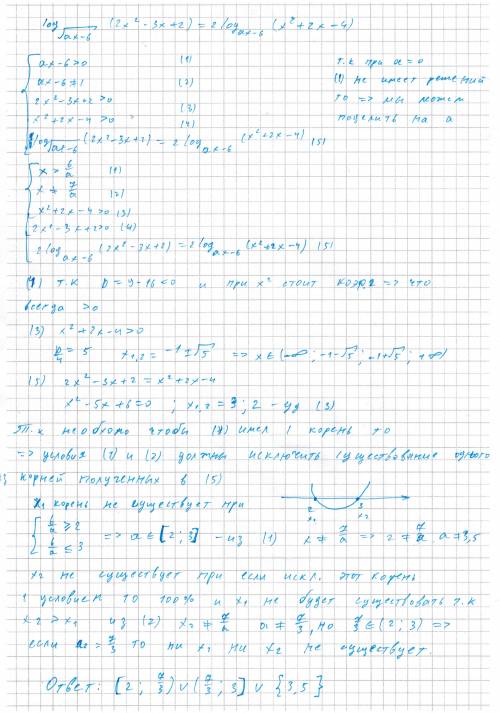 log_√(ax-6) (2x²-3x+2) = 2 log_(ax-6) (x²+2x-4)
{ ax-6>0 (1) т.к при a=0
ax-6≠1 (2) (1) не имеет решений
2x²-3x+2>0 (3) то => мы можем
x²+2x-4>0 (4) поделить на a
log_√(ax-6) (2x²-3x+2) = 2 log_(ax-6) (x²+2x-4) (5)
{ x > 6/a (1)
x ≠ 7/a (2)
x²+2x-4>0 (3)
2x²-3x+2>0 (4)
2 log_(ax-6) (2x²-3x+2) = 2 log_(ax-6) (x²+2x-4) (5)
(4) т.к D=9-16<0 и при x² стоит коэф. 2 => что
всегда >0
(3) x²+2x-4>0
D/4 = 5 x₁,₂ = -1±√5 => x∈(-∞; -1-√5; -1+√5; +∞)
(5) 2x²-3x+2 = x²+2x-4
x²-5x+6=0 ; x₁,₂ = 3; 2 - уд (3)
Т.к необхомо чтобы (4) имел 1 корень то
=> условия (1) и (2) должны исключить существование одного
из корней полученных в (5)
x₁ корень не существует при 2 x₁ 3 x₂
{ 6/a ≥ 2
6/a ≤ 3 => a∈[2;3] - из (1) x ≠ 7/a => 2 ≠ 7/a a≠3,5
x₂ не существует при если искл. этот корень
1 условием то 100% и x₁ не будет существовать т.к
x₂ > x₁ из (2) x₂ ≠ 7/a a ≠ 7/3, но 7/3 ∈ (2;3) =>
если a = 7/3 то ни x₁ ни x₂ не существует.
Ответ: [2; 7/3) ∪ (7/3; 3] ∪ {3,5}